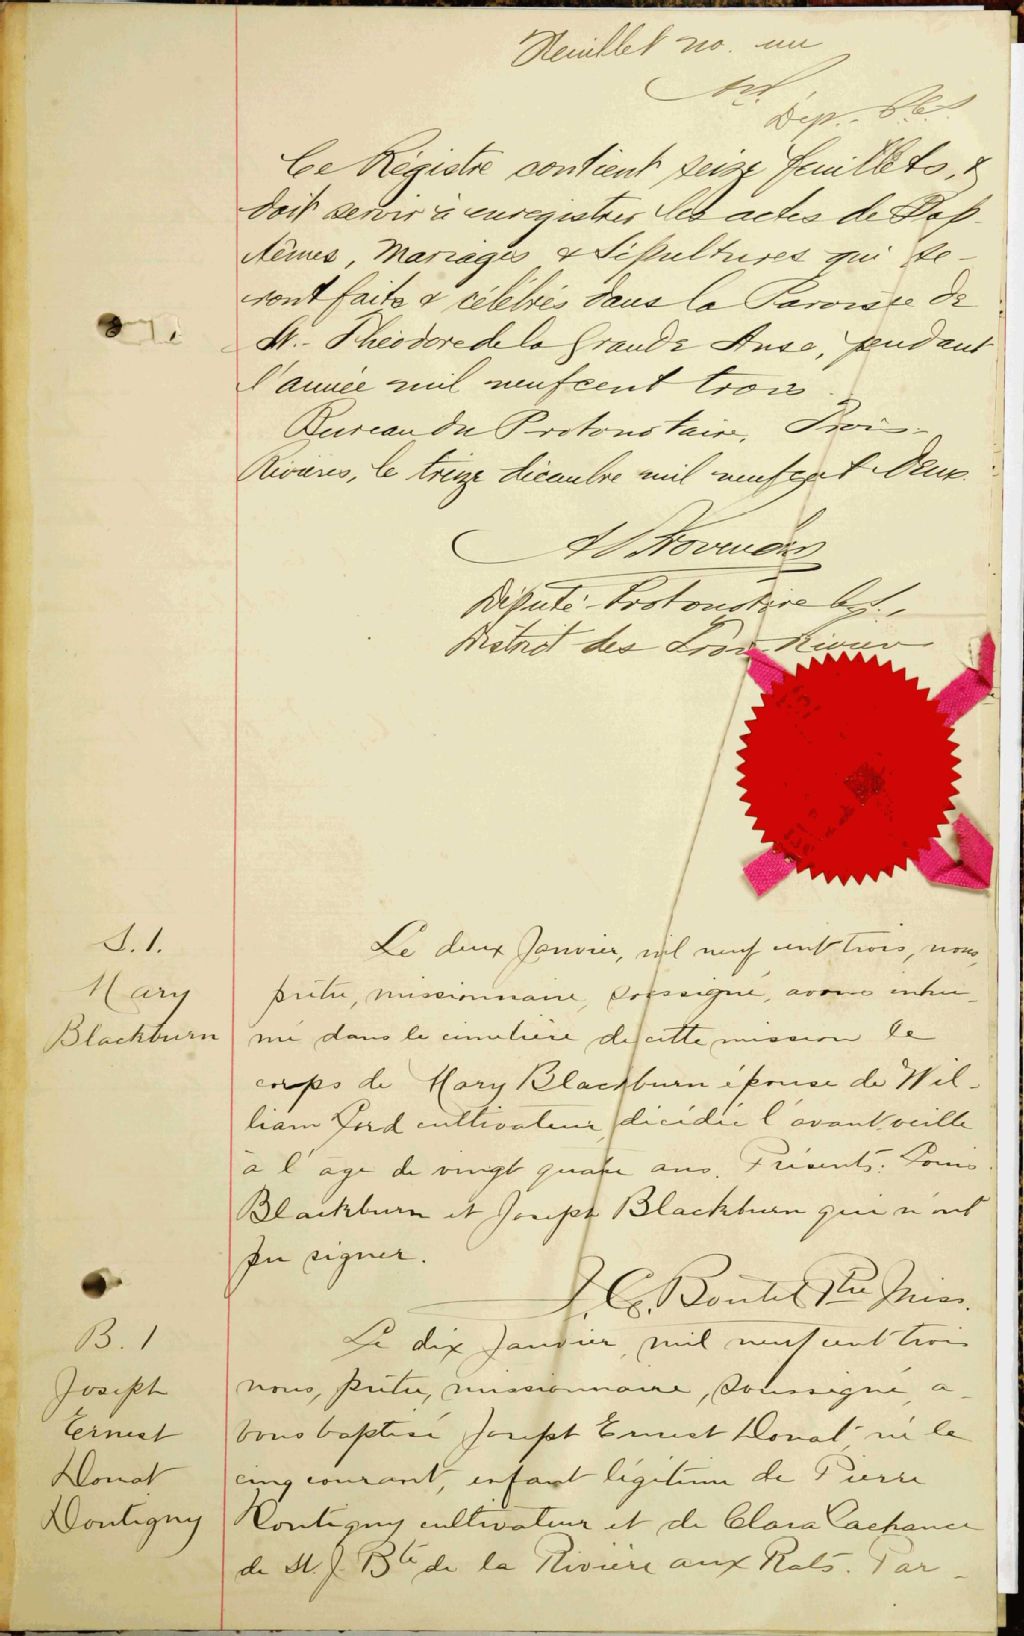 Feuillet no. un
Dép. P.C.S.
Ce Régistre contient seize feuillets, &
doit servir à enregistrer les actes de Bap-
têmes, Mariages & Sépultures qui se-
ront faits & célébrés dans la Paroisse de
St.- Théodore de la Grande Anse, pendant
l'année mil neufcent trois.
Bureau du Protonotaire, Trois-
Rivières, le treize décembre mil neufcent deux.
Provencher
Député-Protonotaire
District des Trois Rivières
S. 1.
Mary
Blackburn
Le deux Janvier, mil neuf cent trois, nous,
prêtre, missionnaire, soussigné, avons inhu-
mé dans le cimetière de cette mission le
corps de Mary Blackburn épouse de Wil-
liam Ford cultivateur, décédée l'avant veille
à l'âge de vingt quatre ans. Présents: Louis
Blackburn et Joseph Blackburn qui n'ont
pu signer.
Boutet Ptre Miss.
B. 1
Joseph
Ernest
Donat
Dontigny
Le dix Janvier, mil neuf cent trois
nous, prêtre, missionnaire, soussigné, a-
vons baptisé Joseph Ernest Donat, né le
cinq courant, enfant légitime de Pierre
Dontigny cultivateur et de Clara Lachance
de St. J. Bte de la Rivière aux Rats. Par-